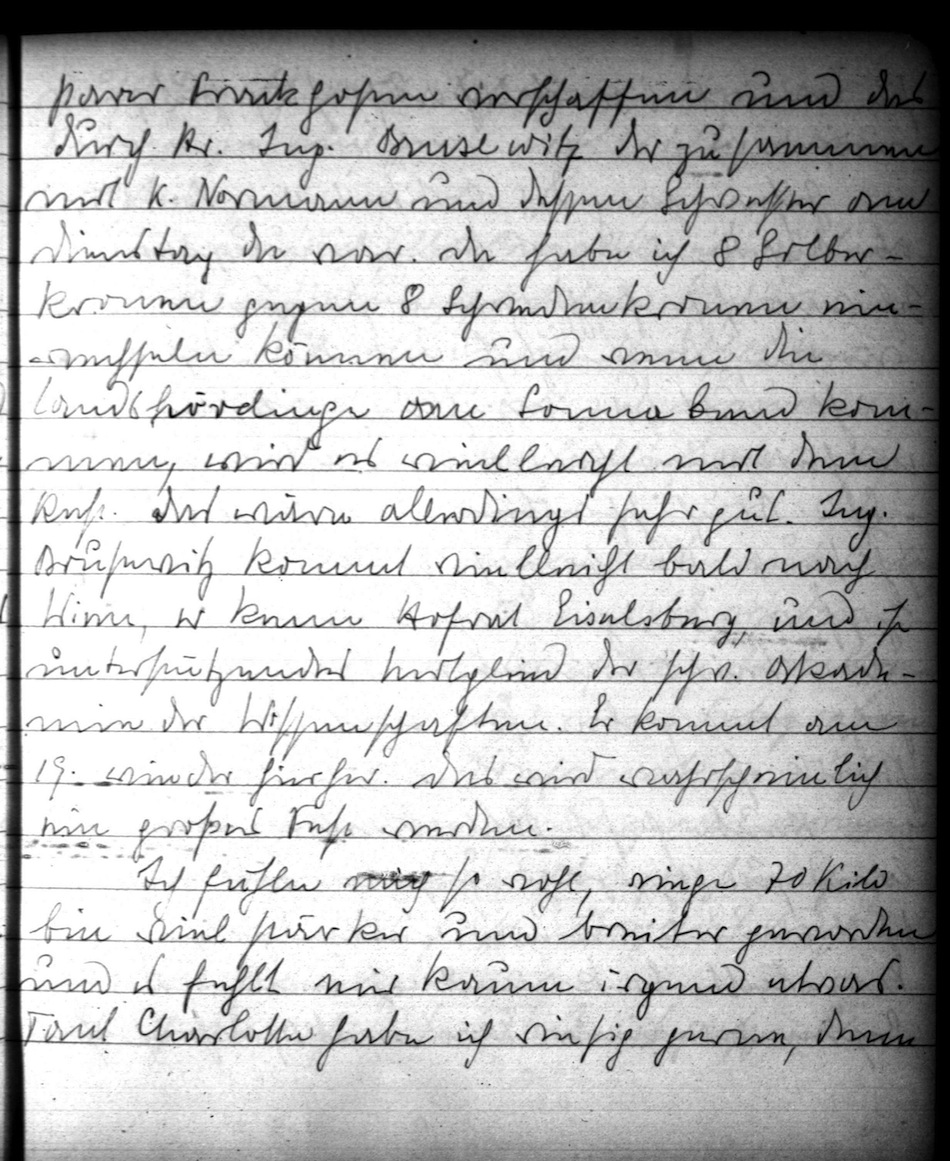 paar Frackhosen verschaffen und das
durch Hr. Ing. Brusewitz der zusammen
mit K. Normann und dessen Schwester am
Dienstag da war. Da habe ich 8 Silber-
kronen gegen 8 Schwedenkronen ein-
wechseln können und wenn die
Landshövdinge am Sonnabend kom-
men, wird es vielleicht mit dem
Das wäre allerdings sehr gut. Ing.
Brusewitz kommt vielleicht bald nach
Wien, er kennt Hofrat Eiselsberg, und ist
unterstützendes Mitglied der schw. Akade-
mie der Wissenschaften. Er kommt am
19. wieder hierher. Das wird wahrscheinlich
ein großes Fest werden.
Ich fühle mich so wohl, wiege 70 Kilo
bin viel stärker und breiter geworden
und es fehlt mir kaum irgend etwas.
Tant Charlotte habe ich riesig gerne, denn